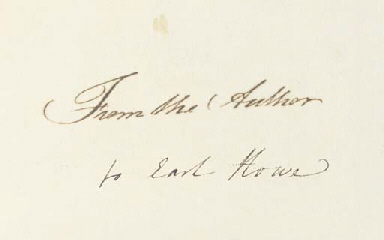 From the Author
to Earl Howe